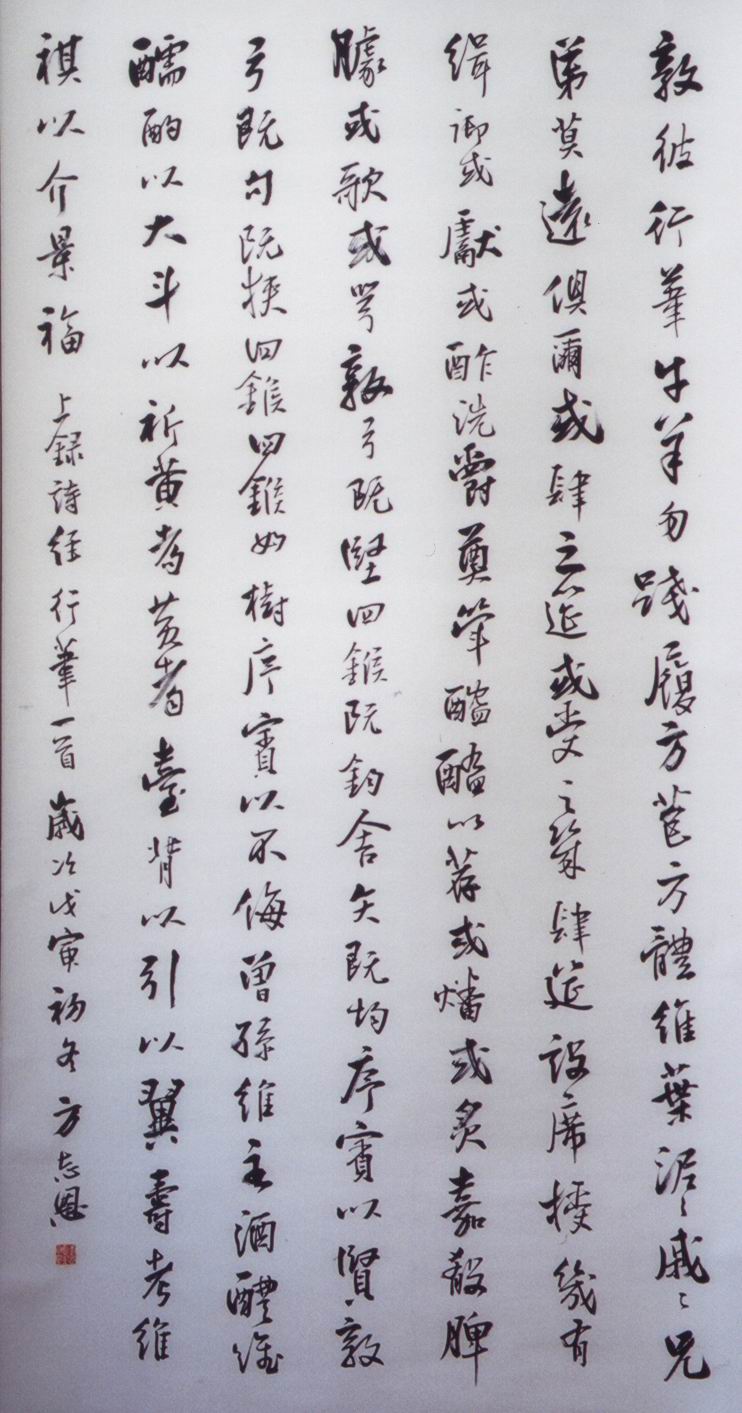 敦彼行葦牛羊勿踐履方苞方體維葉泥〻戚〻兄
弟莫遠俱爾或肆之筵或受之幾肆筵設席授幾有
緝御或獻或酢洗爵奠斝醓醢以荐或燔或炙嘉殽脾
臄或歌或咢敦弓既堅四鍭既鈞舍矢既均序賓以賢敦
弓既句既挾四鍭四鍭如樹序賓以不侮曾孫維主酒醴維
醹酌以大斗以祈黃耇黃耇臺背以引以翼壽考維
祺以介景福 上錄詩經行葦一首 歲次戊寅初冬 方志恩